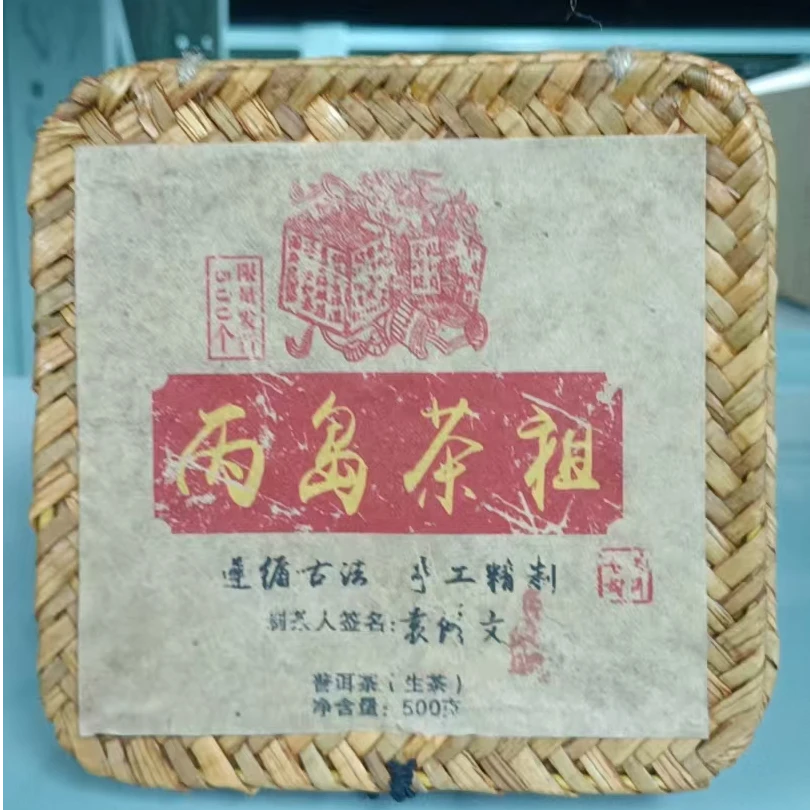 限量发行
500个
丙岛茶祖
遵循古法 手工精制
制茶人签名:袁 文
普洱茶(生茶)
净含量:500克